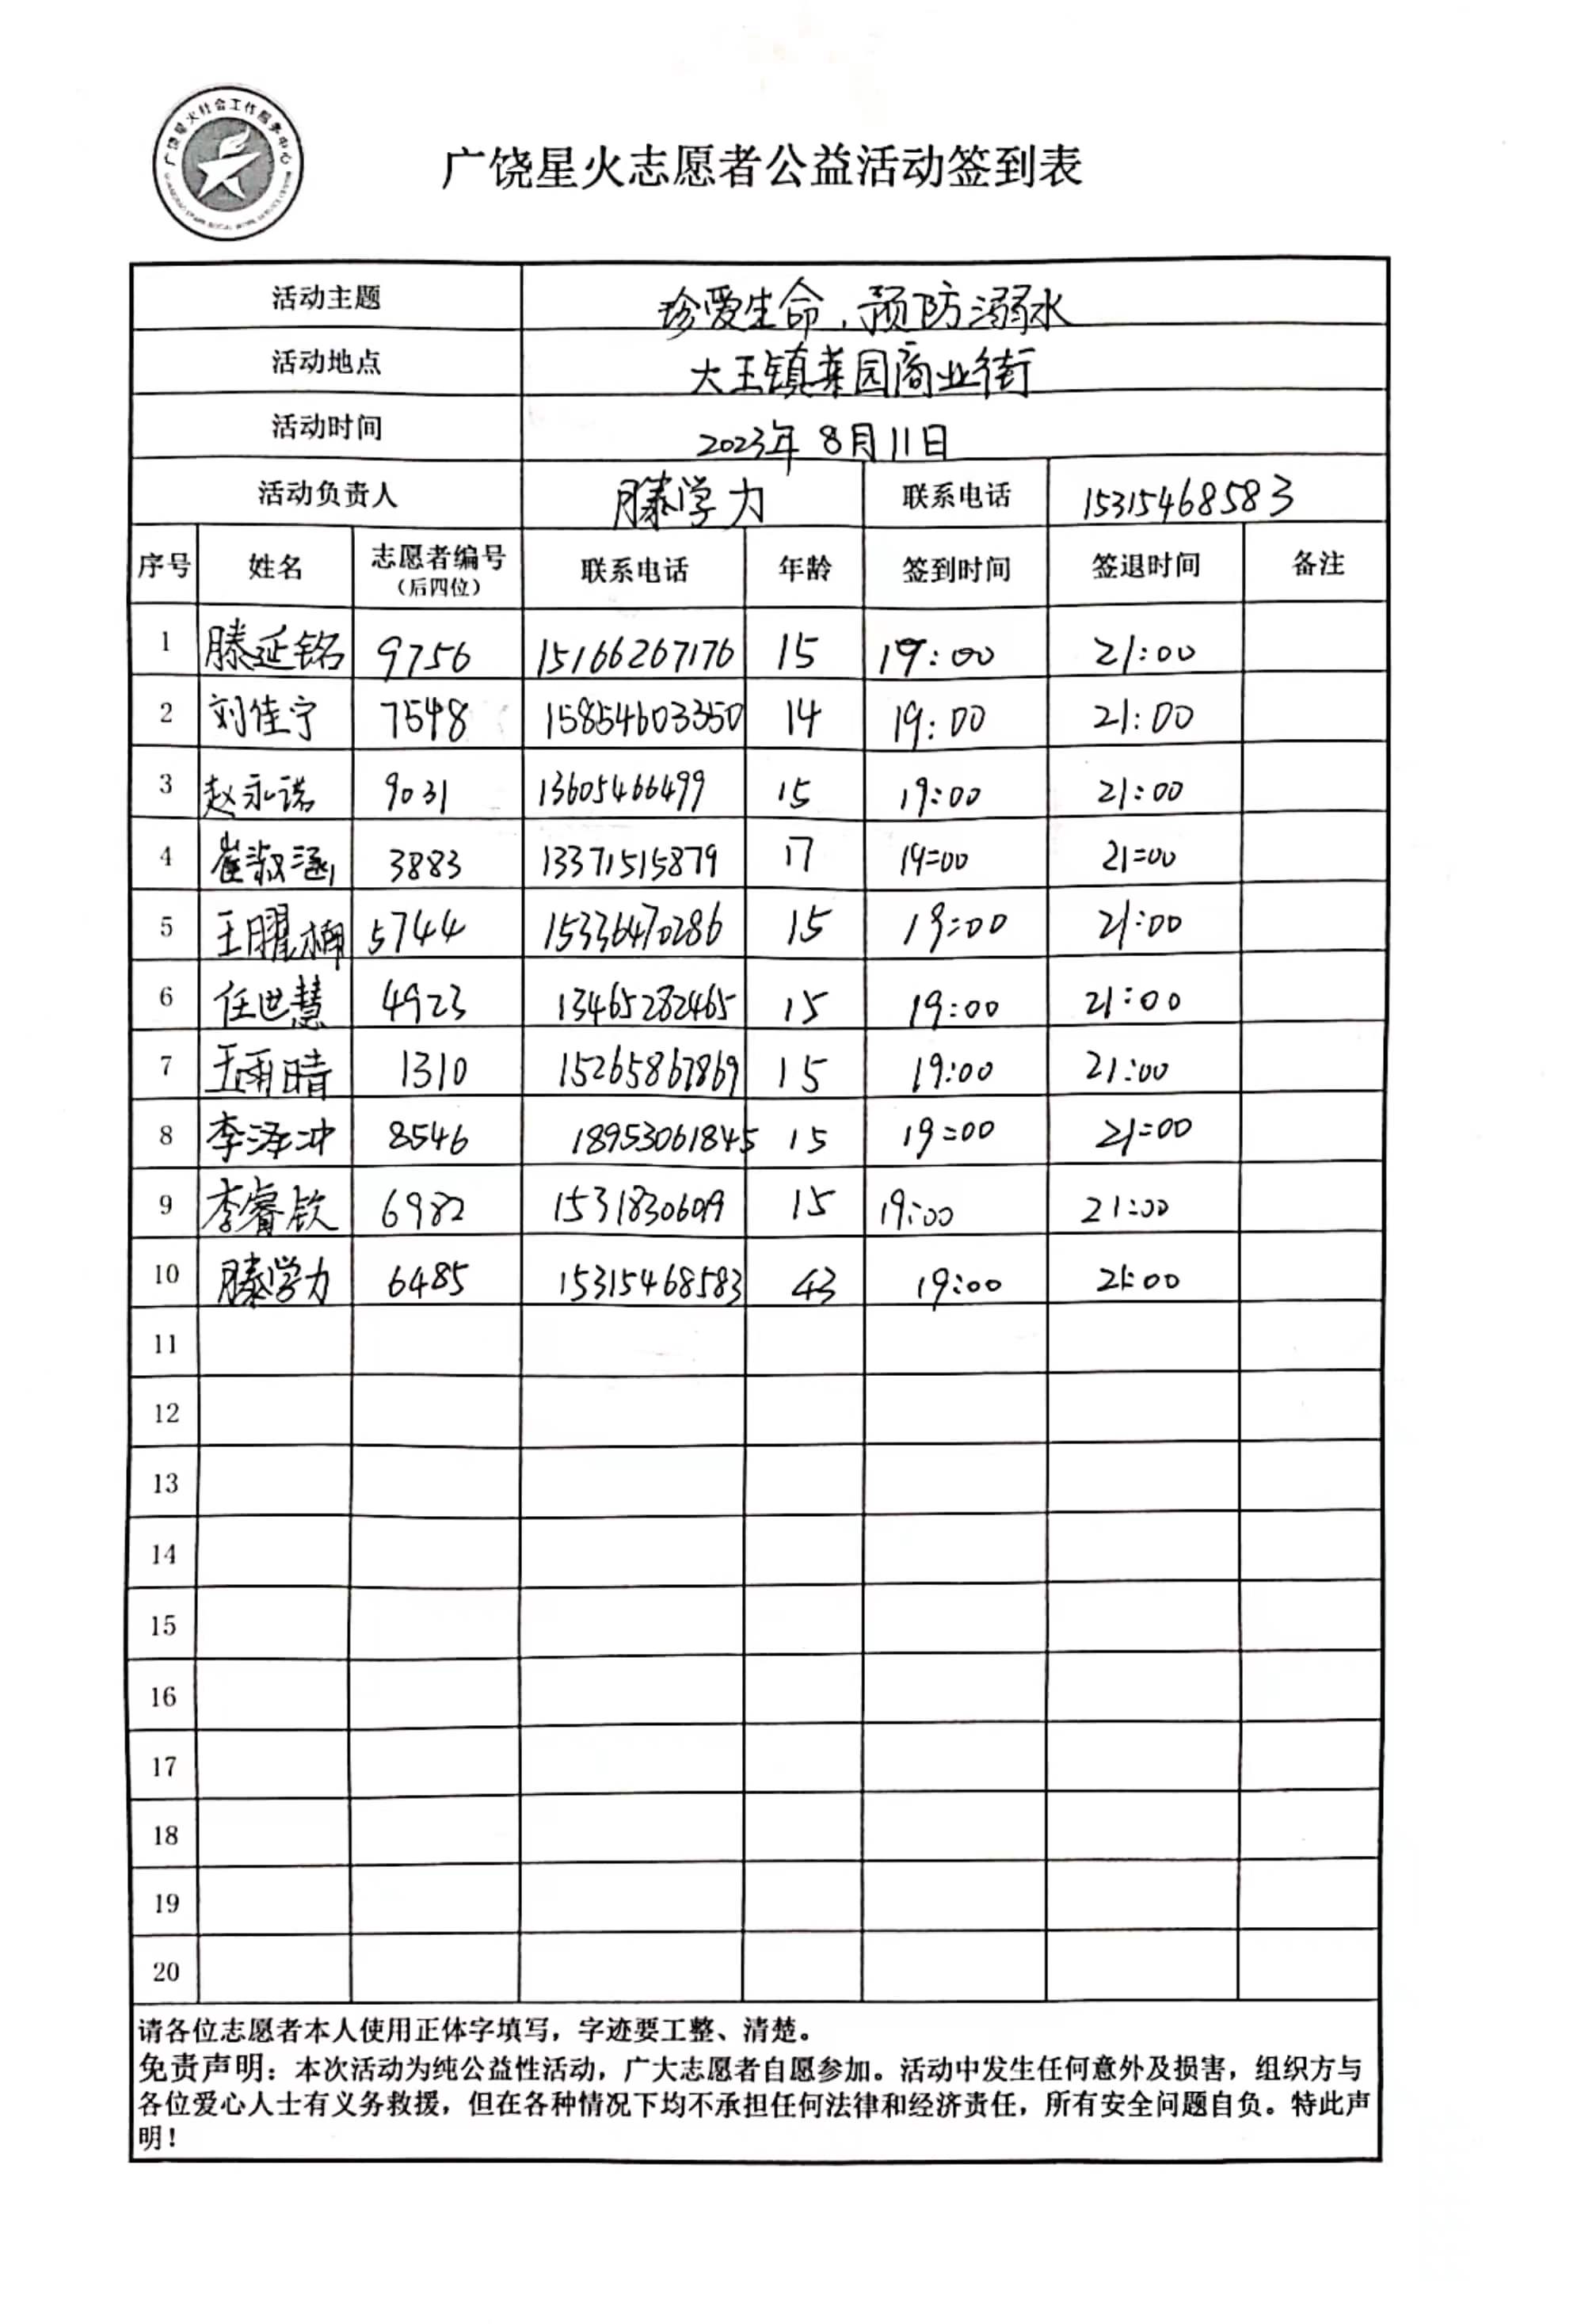 广饶星火社会工作服务中心
广饶星火志愿者公益活动签到表
活动主题 珍爱生命，预防溺水
活动地点 大王镇菜园商业街
活动时间 2023年8月11日
活动负责人 滕学力 联系电话 15315468583
序号 姓名 志愿者编号（后四位） 联系电话 年龄 签到时间 签退时间 备注
1 滕延铭 9756 15166267176 15 19:00 21:00
2 刘佳宁 7548 15854603350 14 19:00 21:00
3 赵永诺 9031 13605466499 15 19:00 21:00
4 崔淑涵 3883 13371515879 17 19:00 21:00
5 5744 15336470286 15 19:00 21:00
6 任世慧 4923 13465282465 15 19:00 21:00
7 王雨晴 1310 15265867869 15 19:00 21:00
8 李泽冲 8546 18953061845 15 19:00 21:00
9 李睿钦 6982 15 19:00 21:00
10 滕学力 6485 15315468583 43 19:00 21:00
11
12
13
14
15
16
17
18
19
20
请各位志愿者本人使用正体字填写，字迹要工整、清楚。
免责声明：本次活动为纯公益性活动，广大志愿者自愿参加。活动中发生任何意外及损害，组织方与
各位爱心人士有义务救援，但在各种情况下均不承担任何法律和经济责任，所有安全问题自负。特此声
明！